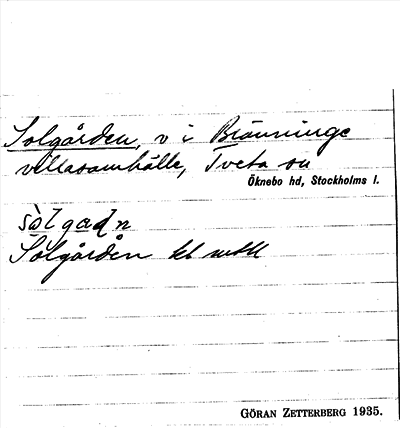 Solgården, v i Bränninge
villasamhälle, Tveta sn
Öknebo hd, Stockholms l.
sòlgaɖn
Solgården bl a
GÖRAN ZETTERBERG 1935.